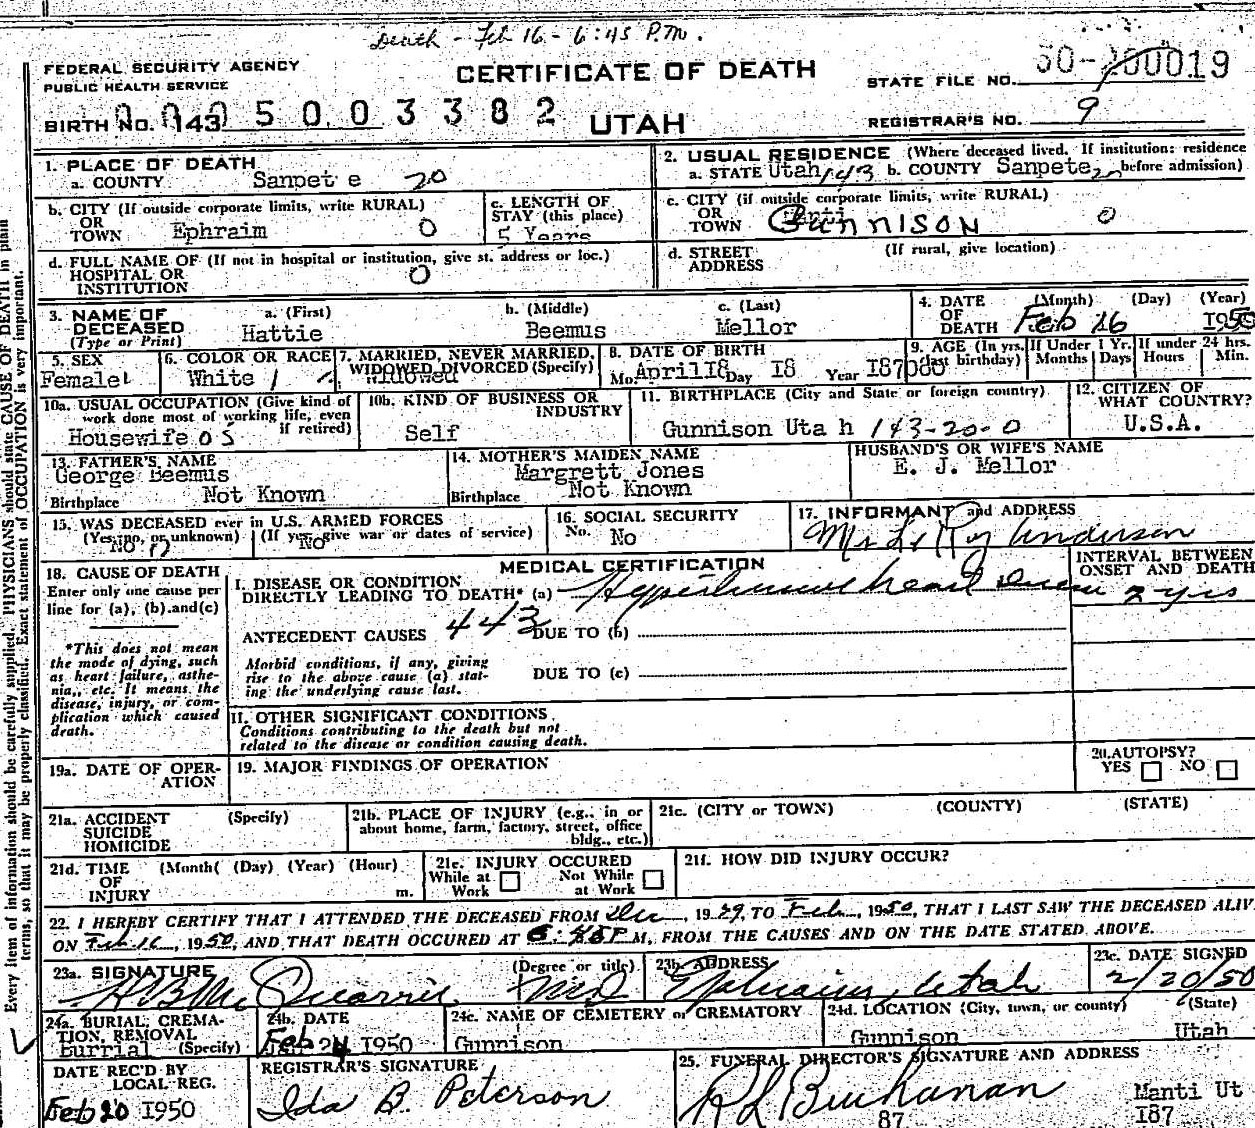 Death - Feb 16 - 6:45 P.M.
FEDERAL SECURITY AGENCY
PUBLIC HEALTH SERVICE
CERTIFICATE OF DEATH
STATE FILE NO.
BIRTH NO. 143
UTAH
REGISTRAR'S NO. 9
1. PLACE OF DEATH
a. COUNTY Sanpete 20
2. USUAL RESIDENCE (Where deceased lived. If institution: residence before admission)
a. STATE Utah 143 b. COUNTY Sanpete 20
b. CITY (If outside corporate limits, write RURAL)
OR TOWN Ephraim 0
c. LENGTH OF STAY (this place)
5 Years
c. CITY (if outside corporate limits, write RURAL)
OR TOWN Gunnison 0
d. FULL NAME OF (If not in hospital or institution, give st. address or loc.)
HOSPITAL OR INSTITUTION 0
d. STREET ADDRESS (If rural, give location)
3. NAME OF DECEASED (Type or Print)
a. (First) b. (Middle) c. (Last)
Hattie Beemus Mellor
4. DATE OF DEATH (Month) (Day) (Year)
Feb 16 1950
5. SEX
Female
6. COLOR OR RACE
White 1
7. MARRIED, NEVER MARRIED, WIDOWED DIVORCED (Specify)
Widowed
8. DATE OF BIRTH
Mo. April 18 Day 18 Year 187
9. AGE (In yrs. last birthday) If Under 1 Yr. Months Days If under 24 hrs. Hours Min.
10a. USUAL OCCUPATION (Give kind of work done most of working life, even if retired)
Housewife
10b. KIND OF BUSINESS OR INDUSTRY
Self
11. BIRTHPLACE (City and State or foreign country)
Gunnison Uta h 143-20-0
12. CITIZEN OF WHAT COUNTRY?
U.S.A.
13. FATHER'S NAME
George Beemus
Birthplace Not Known
14. MOTHER'S MAIDEN NAME
Margrett Jones
Birthplace Not Known
HUSBAND'S OR WIFE'S NAME
E. J. Mellor
15. WAS DECEASED ever in U.S. ARMED FORCES
(Yes, no, or unknown) (If yes, give war or dates of service)
No No
16. SOCIAL SECURITY
No. No
17. INFORMANT and ADDRESS
Mrs LeRoy Anderson
MEDICAL CERTIFICATION
INTERVAL BETWEEN ONSET AND DEATH
18. CAUSE OF DEATH
Enter only one cause per line for (a), (b).and(c)
*This does not mean the mode of dying, such as heart failure, asthenia,, etc. It means the disease, injury, or complication which caused death.
I. DISEASE OR CONDITION DIRECTLY LEADING TO DEATH* (a) Hypertensive heart Disease 2 yrs
ANTECEDENT CAUSES 443 DUE TO (b)
Morbid conditions, if any, giving rise to the above cause (a) stating the underlying cause last.
DUE TO (c)
II. OTHER SIGNIFICANT CONDITIONS
Conditions contributing to the death but not related to the disease or condition causing death.
19a. DATE OF OPERATION
19. MAJOR FINDINGS OF OPERATION
20. AUTOPSY?
YES NO
21a. ACCIDENT SUICIDE HOMICIDE (Specify)
21b. PLACE OF INJURY (e.g., in or about home, farm, factory, street, office bldg., etc.)
21c. (CITY or TOWN) (COUNTY) (STATE)
21d. TIME OF INJURY (Month( (Day) (Year) (Hour) m.
21e. INJURY OCCURED
While at Work Not While at Work
21f. HOW DID INJURY OCCUR?
22. I HEREBY CERTIFY THAT I ATTENDED THE DECEASED FROM Dec, 1949, TO Feb., 1950, THAT I LAST SAW THE DECEASED ALIVE
ON Feb 16, 1950, AND THAT DEATH OCCURED AT 6:45P M, FROM THE CAUSES AND ON THE DATE STATED ABOVE.
23a. SIGNATURE (Degree or title)
H B McQuarrie MD
23b. ADDRESS
Ephraim, Utah
23c. DATE SIGNED
2/20/50
24a. BURIAL, CREMATION, REMOVAL (Specify)
Burrial
24b. DATE
Feb 1950
24c. NAME OF CEMETERY or CREMATORY
Gunnison
24d. LOCATION (City, town, or county) (State)
Gunnison Utah
DATE REC'D BY LOCAL REG.
Feb 20 1950
REGISTRAR'S SIGNATURE
Ida B. Peterson
25. FUNERAL DIRECTOR'S SIGNATURE AND ADDRESS
R L Buchanan Manti Ut
87 187
Every item of information should be carefully supplied. PHYSICIANS should state CAUSE OF DEATH in plain
terms, so that it may be properly classified. Exact statement of OCCUPATION is very important.